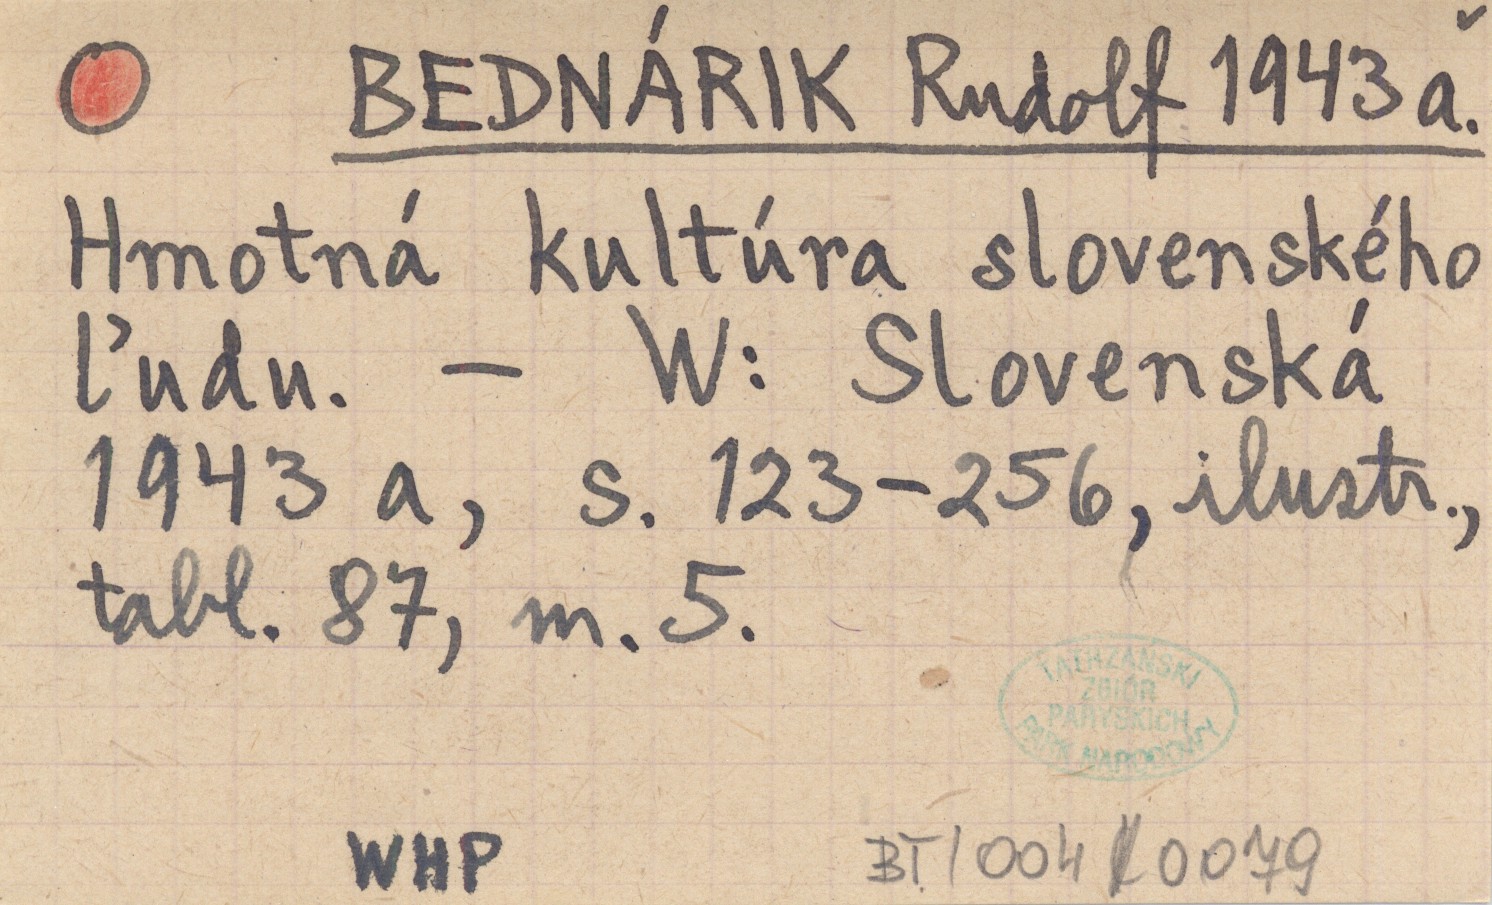 BEDNÁRIK Rudolf 1943 a.
Hmotná kultúra slovenského
ľudu. – W: Slovenská
1943 a, s. 123–256, ilustr.,
tabl. 87, m. 5.
TATRZAŃSKI
ZBIÓR
PARYSKICH
PARK NARODOWY
WHP
BT/004/0079